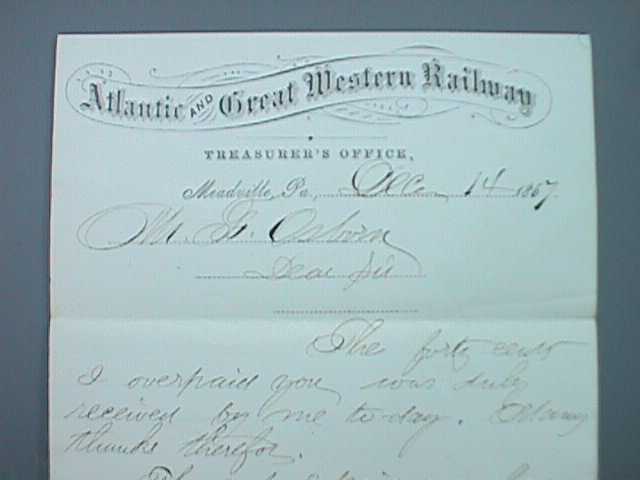 Atlantic AND Great Western Railway
TREASURER'S OFFICE,
Meadville, Pa., Dec 14 1867
Osborn
Dear Sir
The forty cents
I overpaid you, was duly
received by me to-day. Many
thanks therefor.